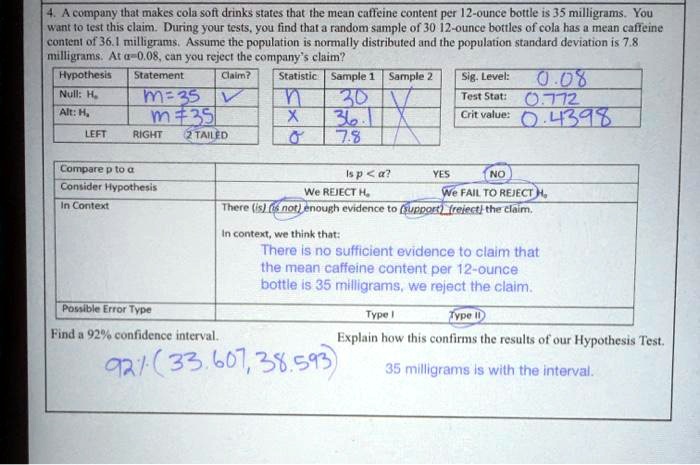 4. A company that makes cola soft drinks states that the mean caffeine content per 12-ounce bottle is 35 milligrams. You
want to test this claim. During your tests, you find that a random sample of 30 12-ounce bottles of cola has a mean caffeine
content of 36.1 milligrams. Assume the population is normally distributed and the population standard deviation is 7.8
milligrams. At α=0.08, can you reject the company's claim?
Hypothesis Statement Claim? Statistic Sample 1 Sample 2 Sig. Level: 0.08
Null: H₀ m=35 ✓ n 30 X Test Stat: 0.772
Alt: Hₐ m≠35 x 36.1 Crit value: 0.4398
LEFT RIGHT 2 TAILED σ 7.8
Compare p to α Is p < α? YES NO
Consider Hypothesis We REJECT H₀ We FAIL TO REJECT H₀
In Context There (is) (is not) enough evidence to (support) (reject) the claim.
In context, we think that:
There is no sufficient evidence to claim that
the mean caffeine content per 12-ounce
bottle is 35 milligrams, we reject the claim.
Possible Error Type Type I Type II
Find a 92% confidence interval. Explain how this confirms the results of our Hypothesis Test.
92% (33.607, 38.593) 35 milligrams is with the interval.